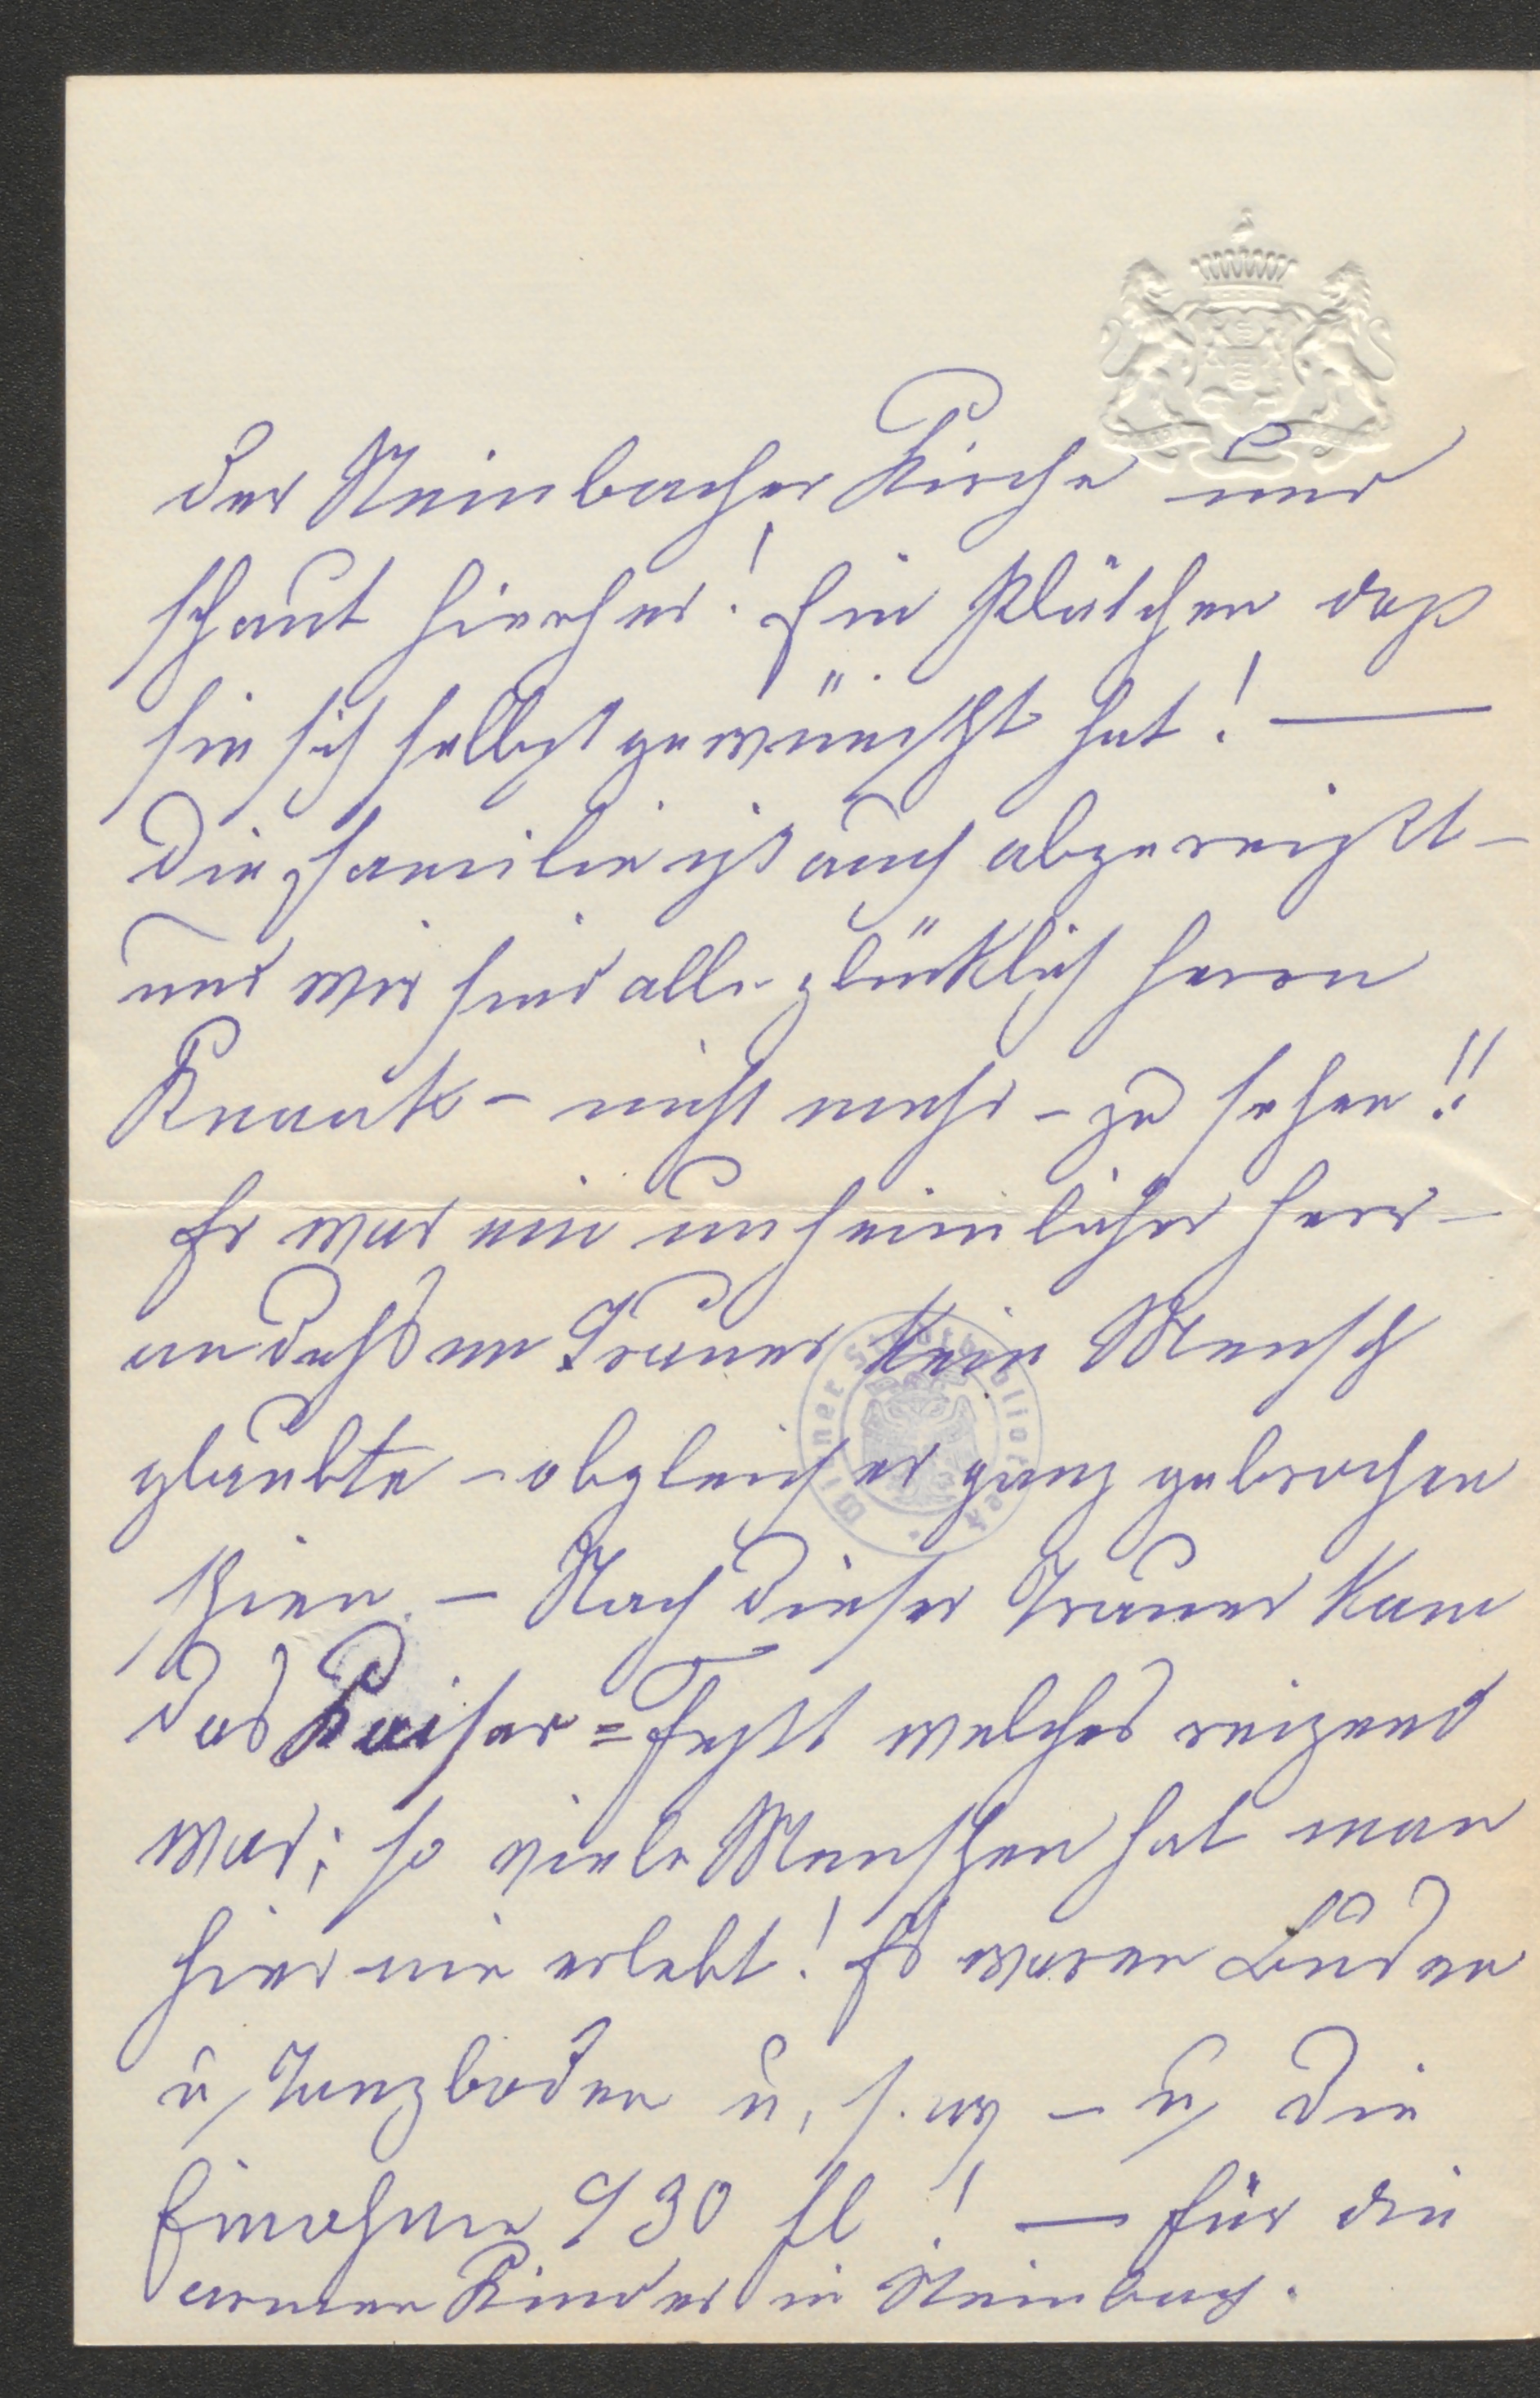 der Steinbacher Kirche und
schaut hierher! Ein Plätchen daß
sie sich selbst gewünscht hat! —
Die Familie ist auch abgereist –
und wir sind alle glücklich Herrn
– nicht mehr – zu sehen!!
Er war ein unheimlicher Herr –
an dessen Trauer kein Mensch
glaubte – obgleich er ganz gebrochen
schien. – Nach dieser Trauer kam
das Kaiser=Fest welches reizend
war; so viele Menschen hat man
hier nie erlebt! Es waren Buden
u. Tanzboden u. s. w. – u. die
Einnahme 930 fl! — für die
armen Kinder in Steinbach.
Wiener Stadtbibliothek